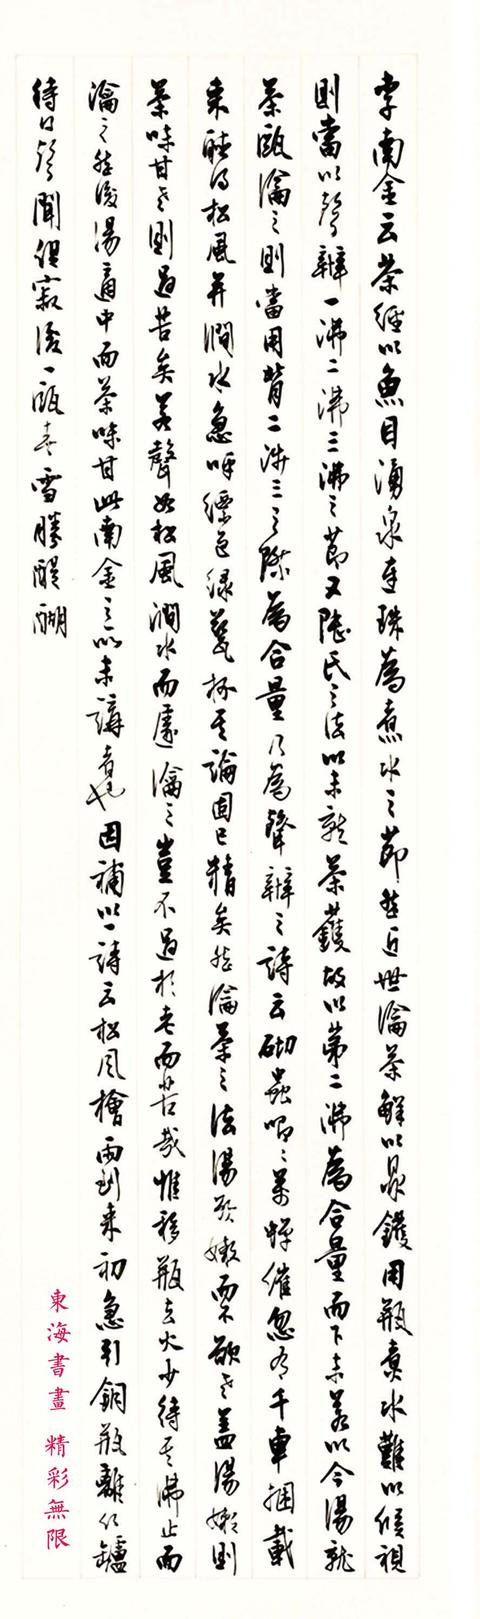 李南金云茶經以魚目湧泉連珠為煮水之節然近世瀹茶鮮以鼎鑊用瓶煮水難以候視
則當以聲辨一沸二沸三沸之節又陸氏之法以未就茶鑊故以第二沸為合量而下未若以今湯就
茶甌瀹之則當用背二涉三之際為合量乃為聲辨之詩云砌蟲唧唧萬蟬催忽有千車捆載
來聽得松風并澗水急呼縹色綠瓷杯其論固已精矣然瀹茶之法湯欲嫩而不欲老蓋湯嫩則
茶味甘老則過苦矣若聲如松風澗水而遽瀹之豈不過於老而苦哉惟移瓶去火少待其沸止而
瀹之然後湯適中而茶味甘此南金之所未講者也因補以一詩云松風檜雨到來初急引銅瓶離竹爐
待得聲聞俱寂後一甌春雪勝醍醐
東海書畫 精彩無限